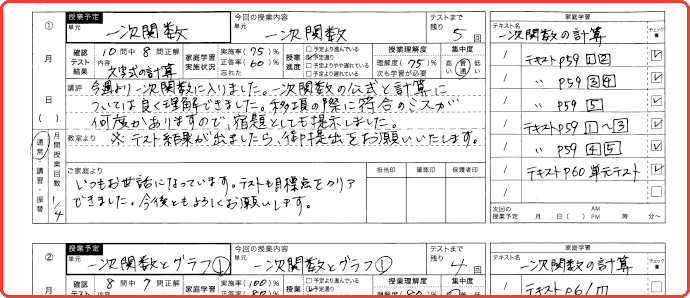 ① 月 日 ( )
授業予定 単元 一次関数
今回の授業内容 単元 一次関数
テストまで 残り 5 回
確認テスト結果 10問中 8問正解 文字式の計算
家庭学習実施状況 実施率( 75 )% 正答率( 60 )% 忘れた
授業進度 □予定より進んでいる □予定通り □予定よりやや遅れている □予定より遅れている
授業理解度 理解度( 75 )% 次も学習が必要
集中度 高い 普通 低い
講評 今週より一次関数に入りました。一次関数の公式と計算に
ついては良く理解できました。移項の際に符合のミスが
何度かありますので、宿題としても提示しました。
教室より ※テスト結果が出ましたら、御提出をお願いいたします。
通常・講習・振替
月間授業回数 1/4
ご家庭より
いつもお世話になっています。テストも目標点をクリア
できました。今後ともよろしくお願いします。
担当印 確認印 保護者印
家庭学習
テキスト名 一次関数の計算 チェック欄
/ テキストP59 1 2
/ 〃 P59 3 4
/ 〃 P59 5
/ テキストP59 1〜3
/ 〃 P59 4 5
/ テキストP60 単元テスト
/
次回の授業予定 月 日( ) AM PM 時 分〜
② 授業予定 単元 一次関数とグラフ①
今回の授業内容 単元 一次関数とグラフ①
テストまで 残り 4 回
確認 8問中 7問正解
家庭学習 実施率( 100 )%
授業 □予定より進んでいる
授業理解度
集中度
家庭学習
テキスト名 一次関数の計算 チェック欄